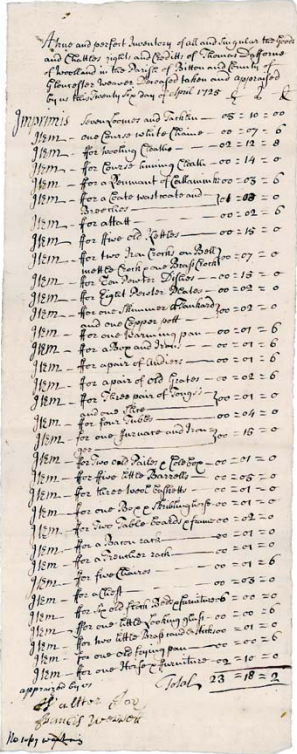 A true and perfect Inventory of all and Singular the Goods
and Chattles rights and Creditts of Thomas
of Woolland in the Parish of Bitton and County of
Gloucester Weaver Deceased taken and appraised
by us this Twenty Six day of April 1725 £ s d
Imprimis Seven Loomes and Tacklin 05 = 10 = 00
Item one Course white Chaine 00 = 07 = 6
Item ffor wooling Cloaths 02 = 12 = 8
Item ffor Course linning Cloath 00 = 14 = 0
Item ffor a Remnant of 00 = 03 = 6
Item ffor a Coate wastcoate and
Breeches 01 = 08 = 0
Item ffor a hatt 00 = 02 = 6
Item ffor ffive old Kettles 00 = 15 = 0
Item ffor two Iron Crocks on Bell
mettle Crock & one Brass Crock 00 = 07 = 0
Item ffor Ten Pewter Dishes 00 = 18 = 0
Item ffor Eight Pewter Plates 00 = 02 = 0
Item ffor one Skimmer
and one Copper pott 00 = 02 = 0
Item ffor one Warming pan 00 = 01 = 6
Item ffor a Box and Irons 00 = 01 = 6
Item ffor a pair of Andiers 00 = 01 = 6
Item ffor a pair of Old Grates 00 = 02 = 6
Item ffor Three pair of Tongs
and one Slice 00 = 01 = 0
Item ffor four Tubbs 00 = 04 = 0
Item for one ffurnace and Iron
00 = 15 = 0
Item ffor two old Pailes 00 = 01 = 0
Item ffor ffive little Barrells 00 = 05 = 0
Item ffor three wool 00 = 01 = 0
Item ffor one Box & 00 = 01 = 0
Item ffor Two Table boards & frame 00 = 02 = 0
Item ffor a Bacon rack 00 = 01 = 0
Item ffor a Trencher rack 00 = 01 = 0
Item ffor five Chaires 00 = 01 = 6
Item ffor a Chest 00 = 03 = 0
Item ffor Bedd & furniture
Item ffor one little Looking glass 00 = 00 = 6
Item ffor two little Brass 00 = 01 = 0
Item ffor one old frying pan 00 = 00 = 6
Item ffor one Horse & furniture 02 = 10 = 0
appraized by us Total 23 = 18 = 2
Walter
Francis